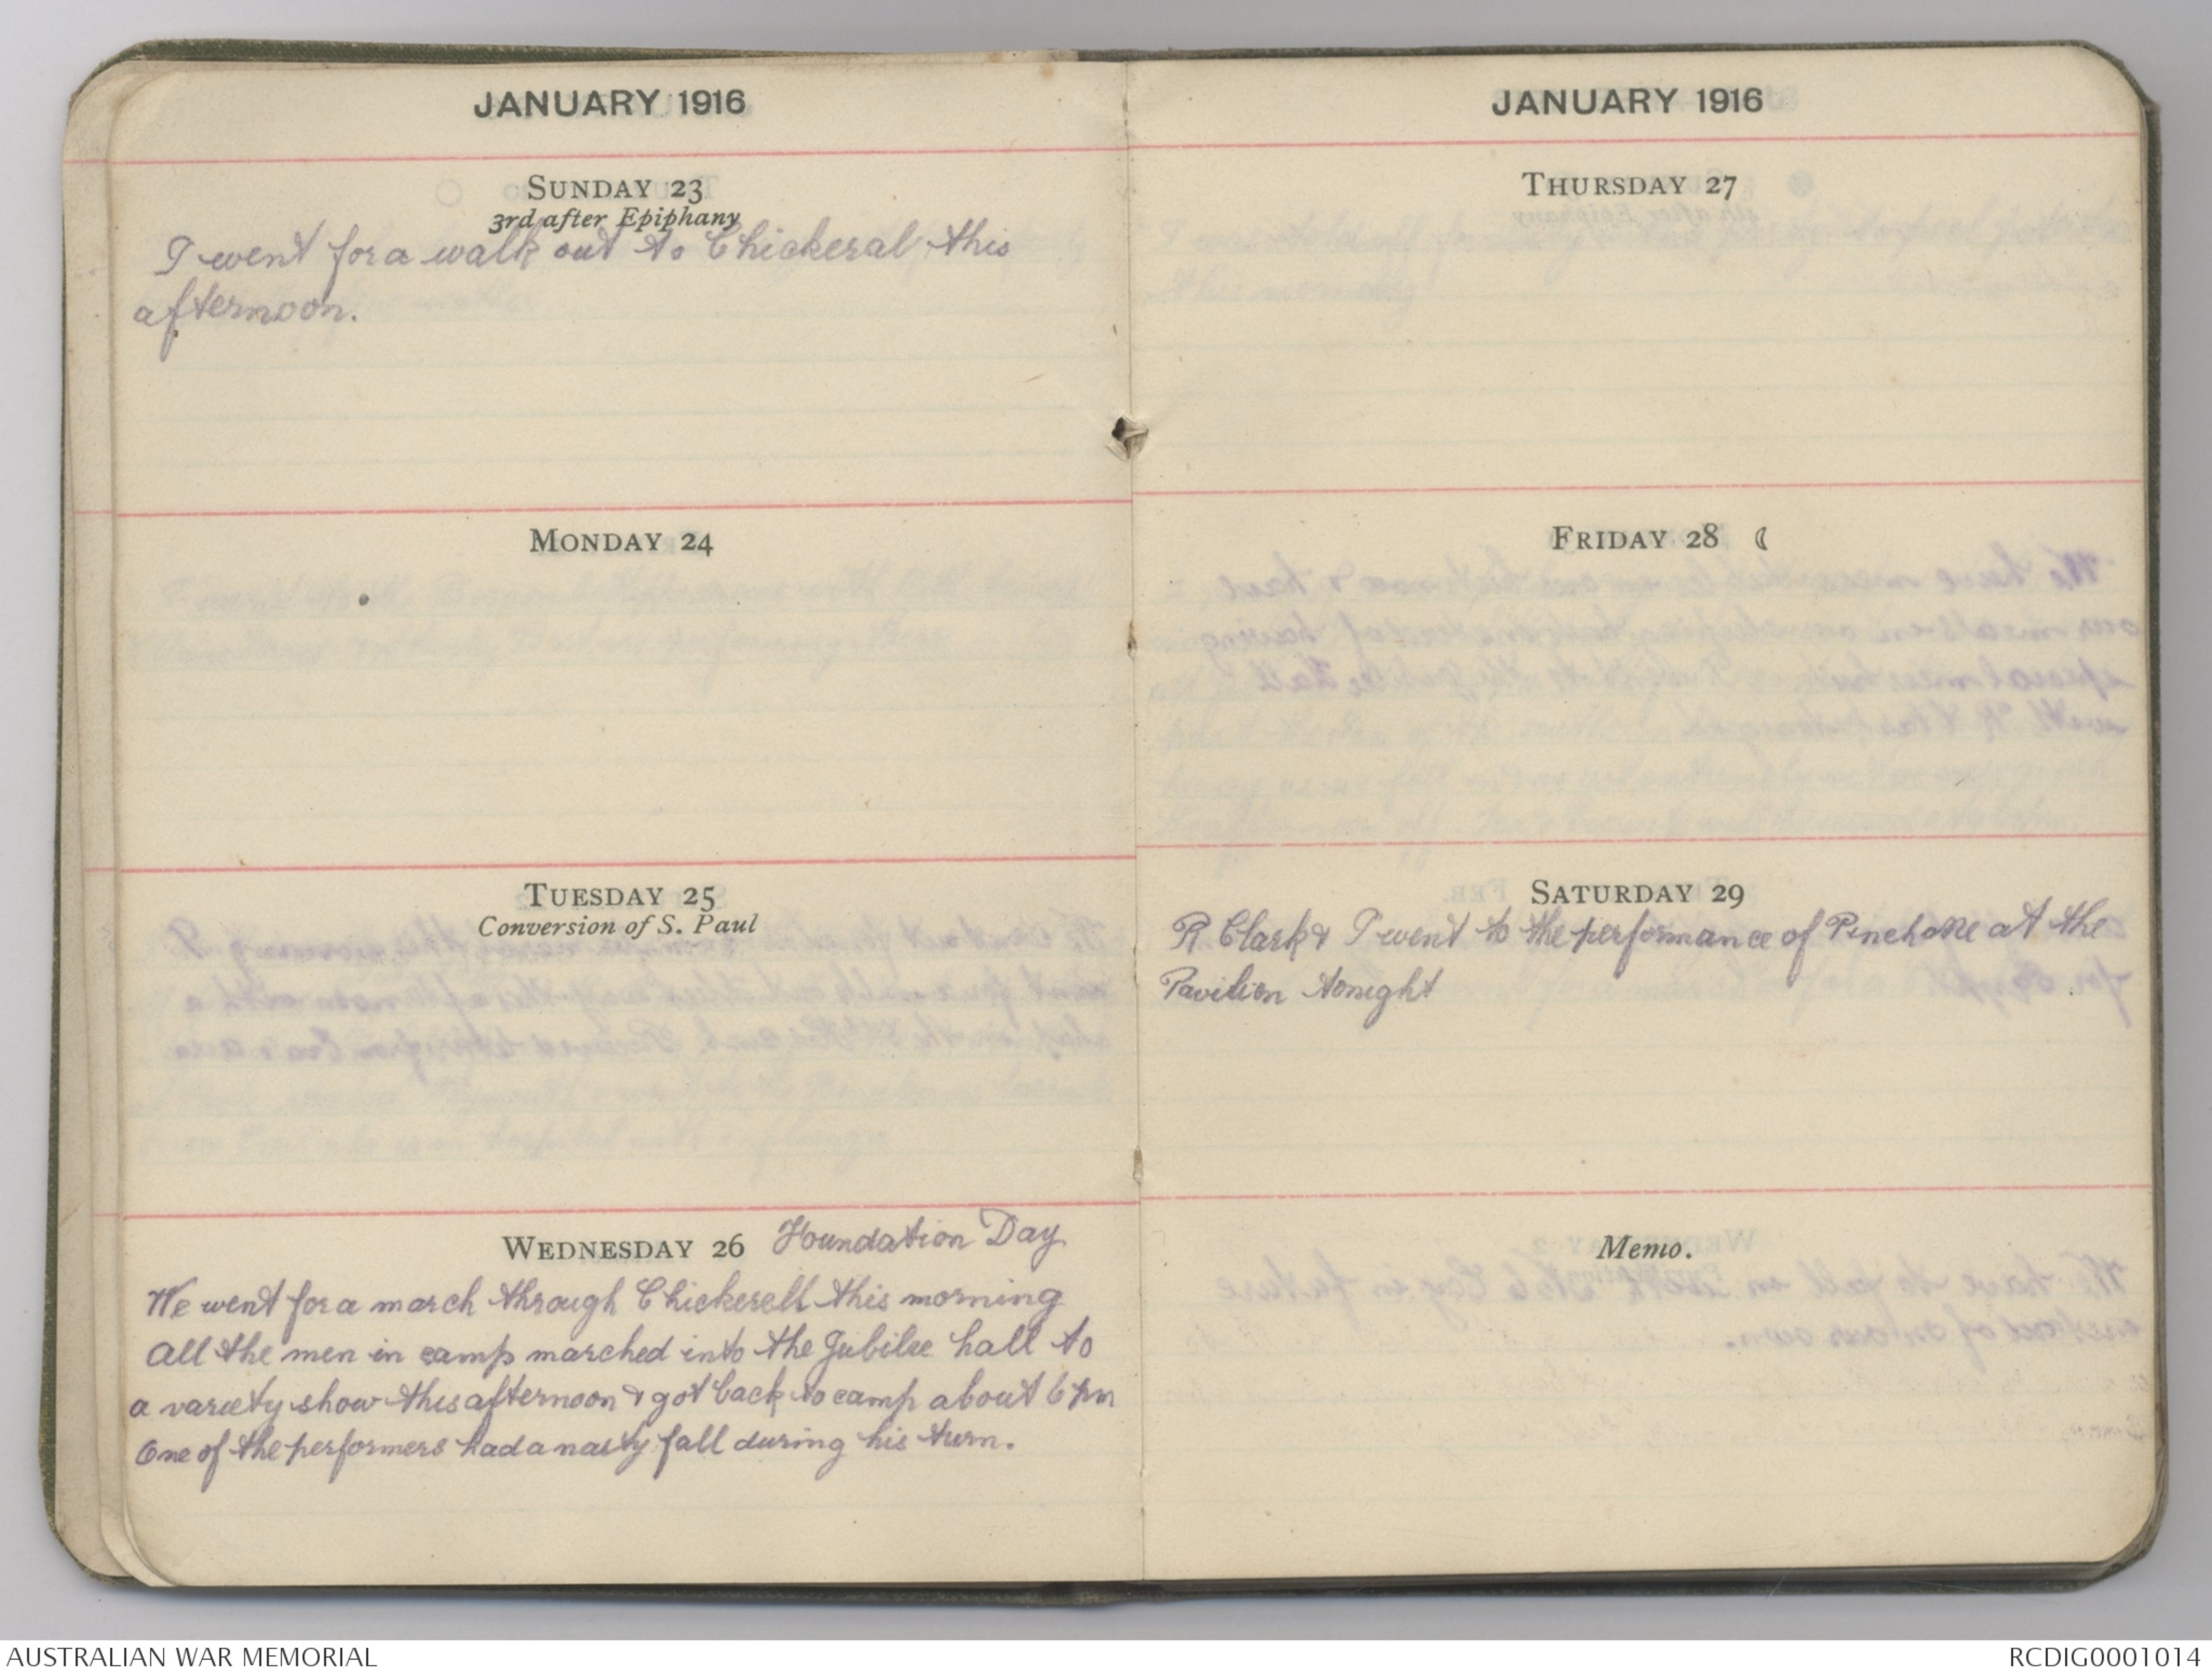 JANUARY 1916
SUNDAY 23
3rd after Epiphany
I went for a walk out to Chickeral this
afternoon.
MONDAY 24
TUESDAY 25
Conversion of S. Paul
WEDNESDAY 26 Foundation Day
We went for a march through Chickerell this morning
All the men in camp marched into the Jubilee hall to
a variety show this afternoon & got back to camp about 6 pm
One of the performers had a nasty fall during his turn.
JANUARY 1916
THURSDAY 27
FRIDAY 28
SATURDAY 29
R Clark & I went to the performance of at the
Pavilion tonight
Memo.
AUSTRALIAN WAR MEMORIAL
RCDIG0001014